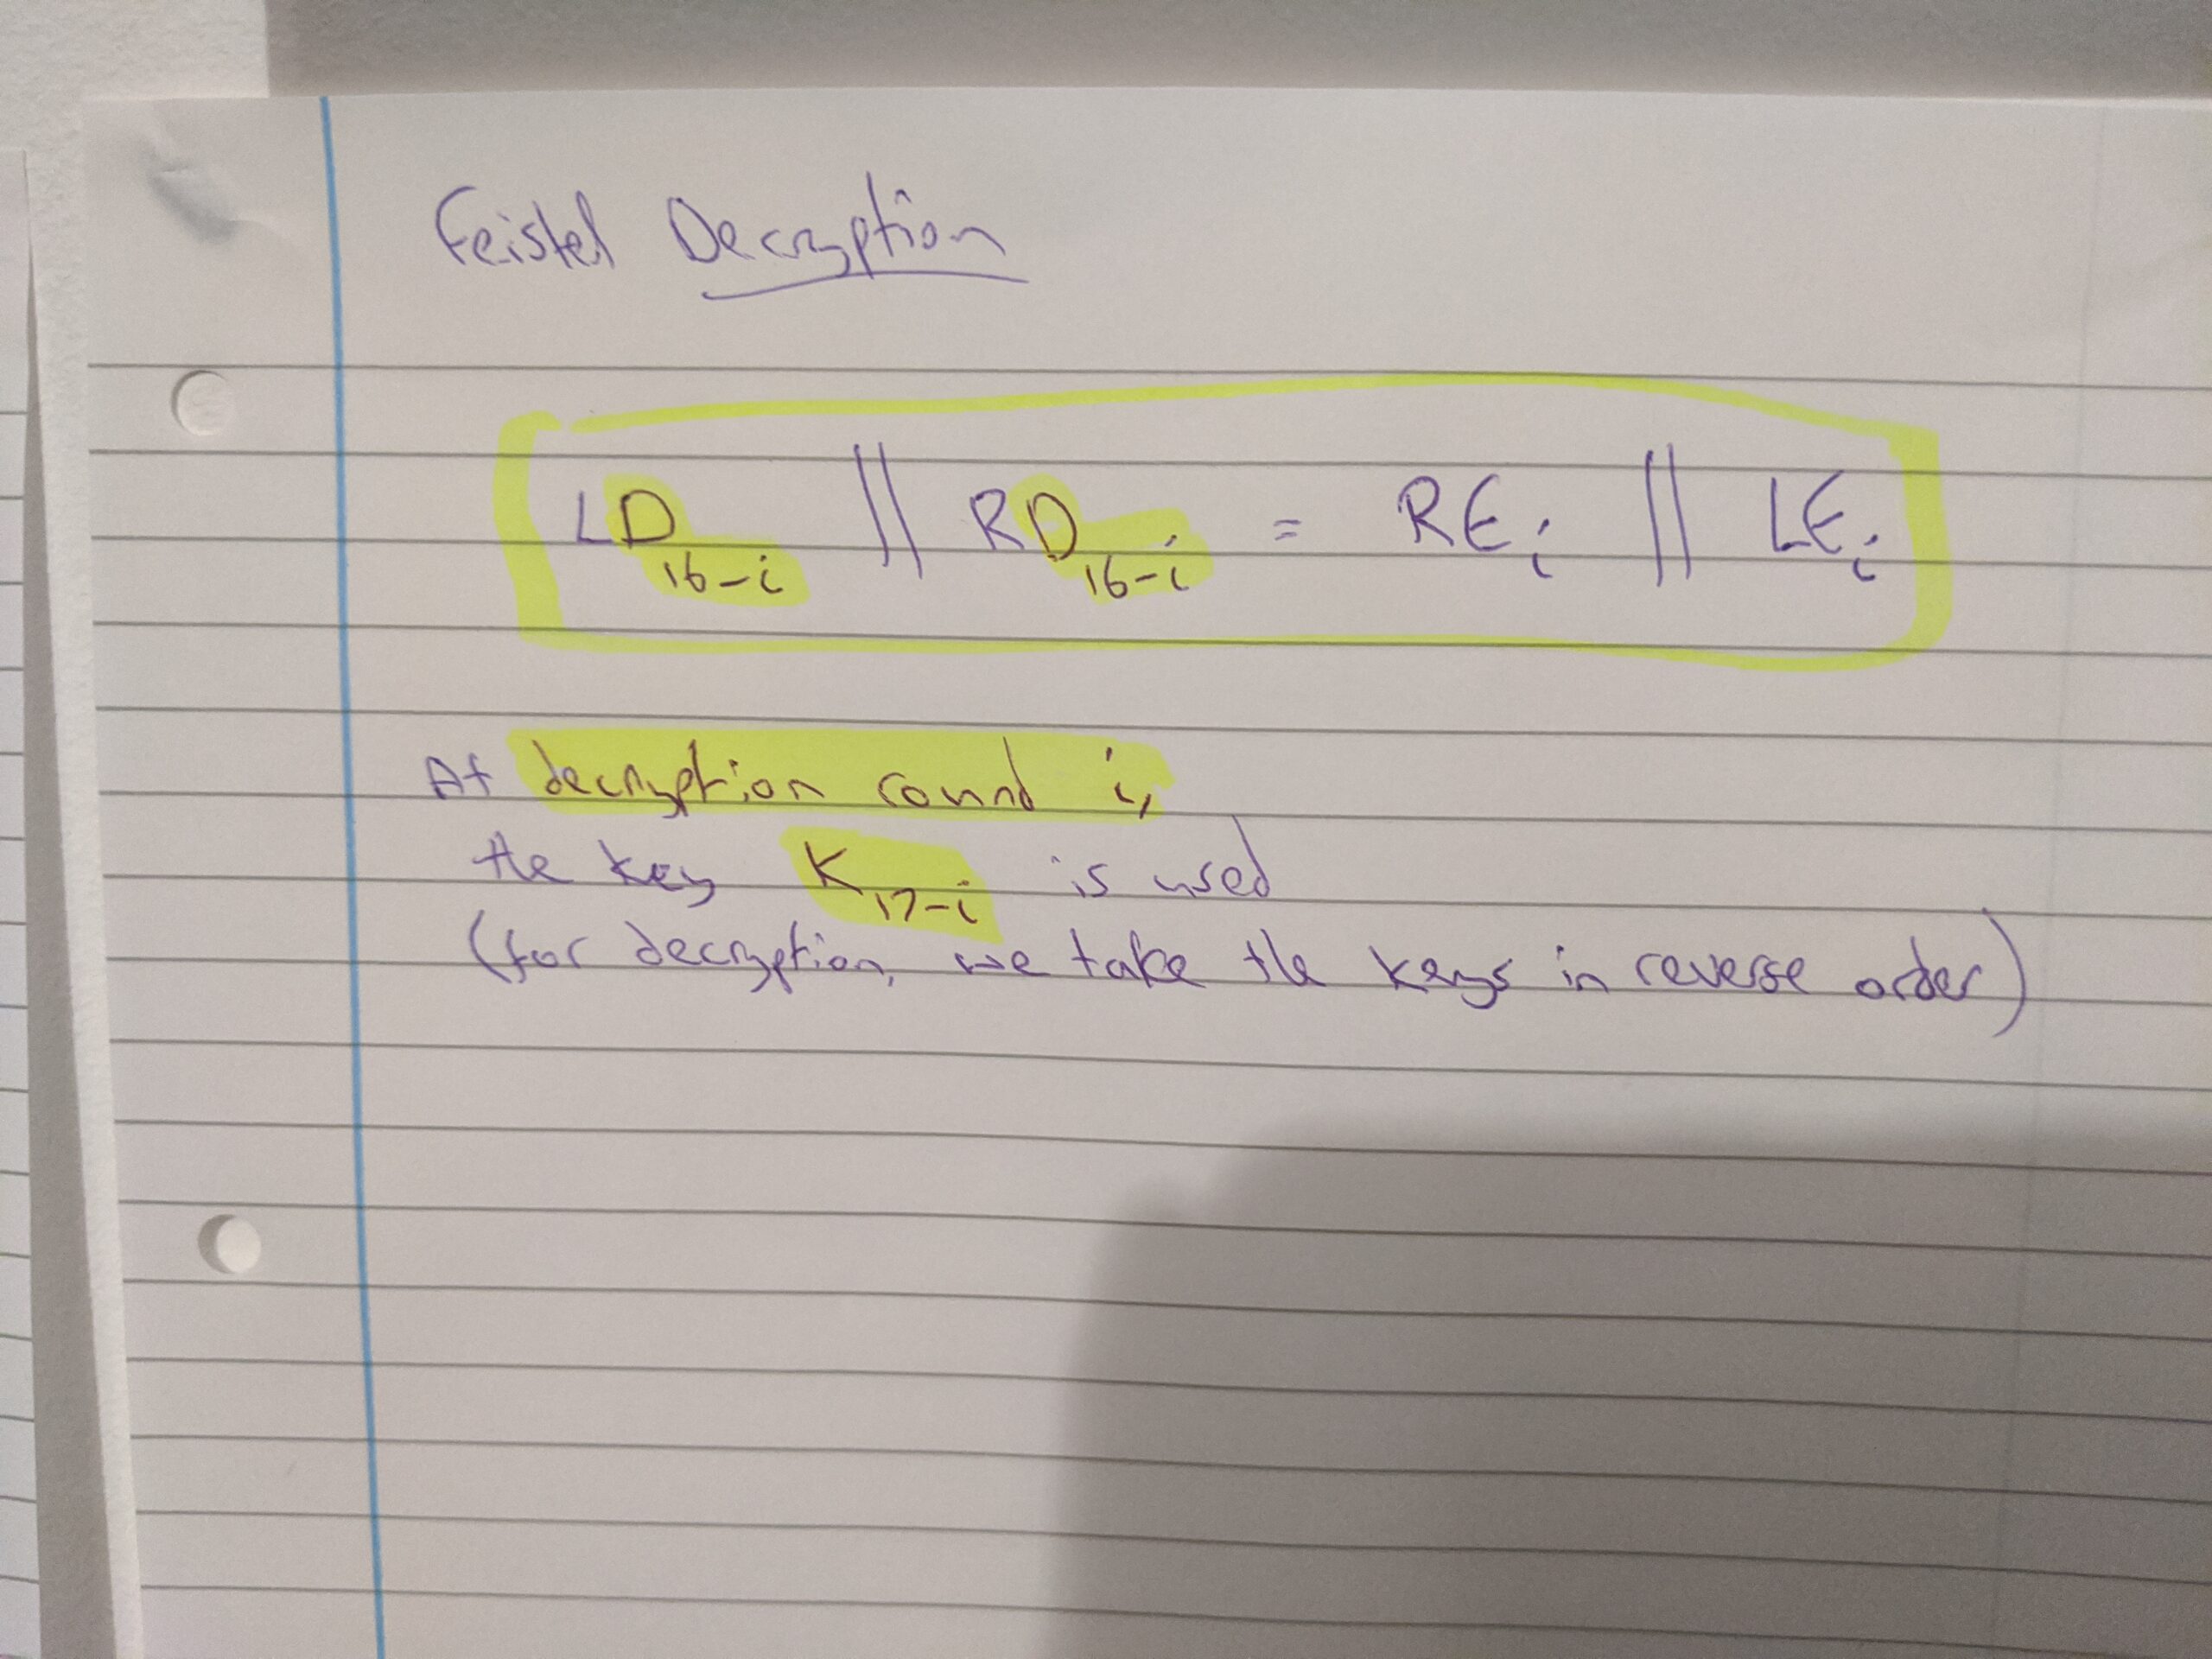 Feistel Decryption
LD₁₆₋ᵢ || RD₁₆₋ᵢ = REᵢ || LEᵢ
At decryption round i,
the key K₁₇₋ᵢ is used
(for decryption, we take the keys in reverse order)